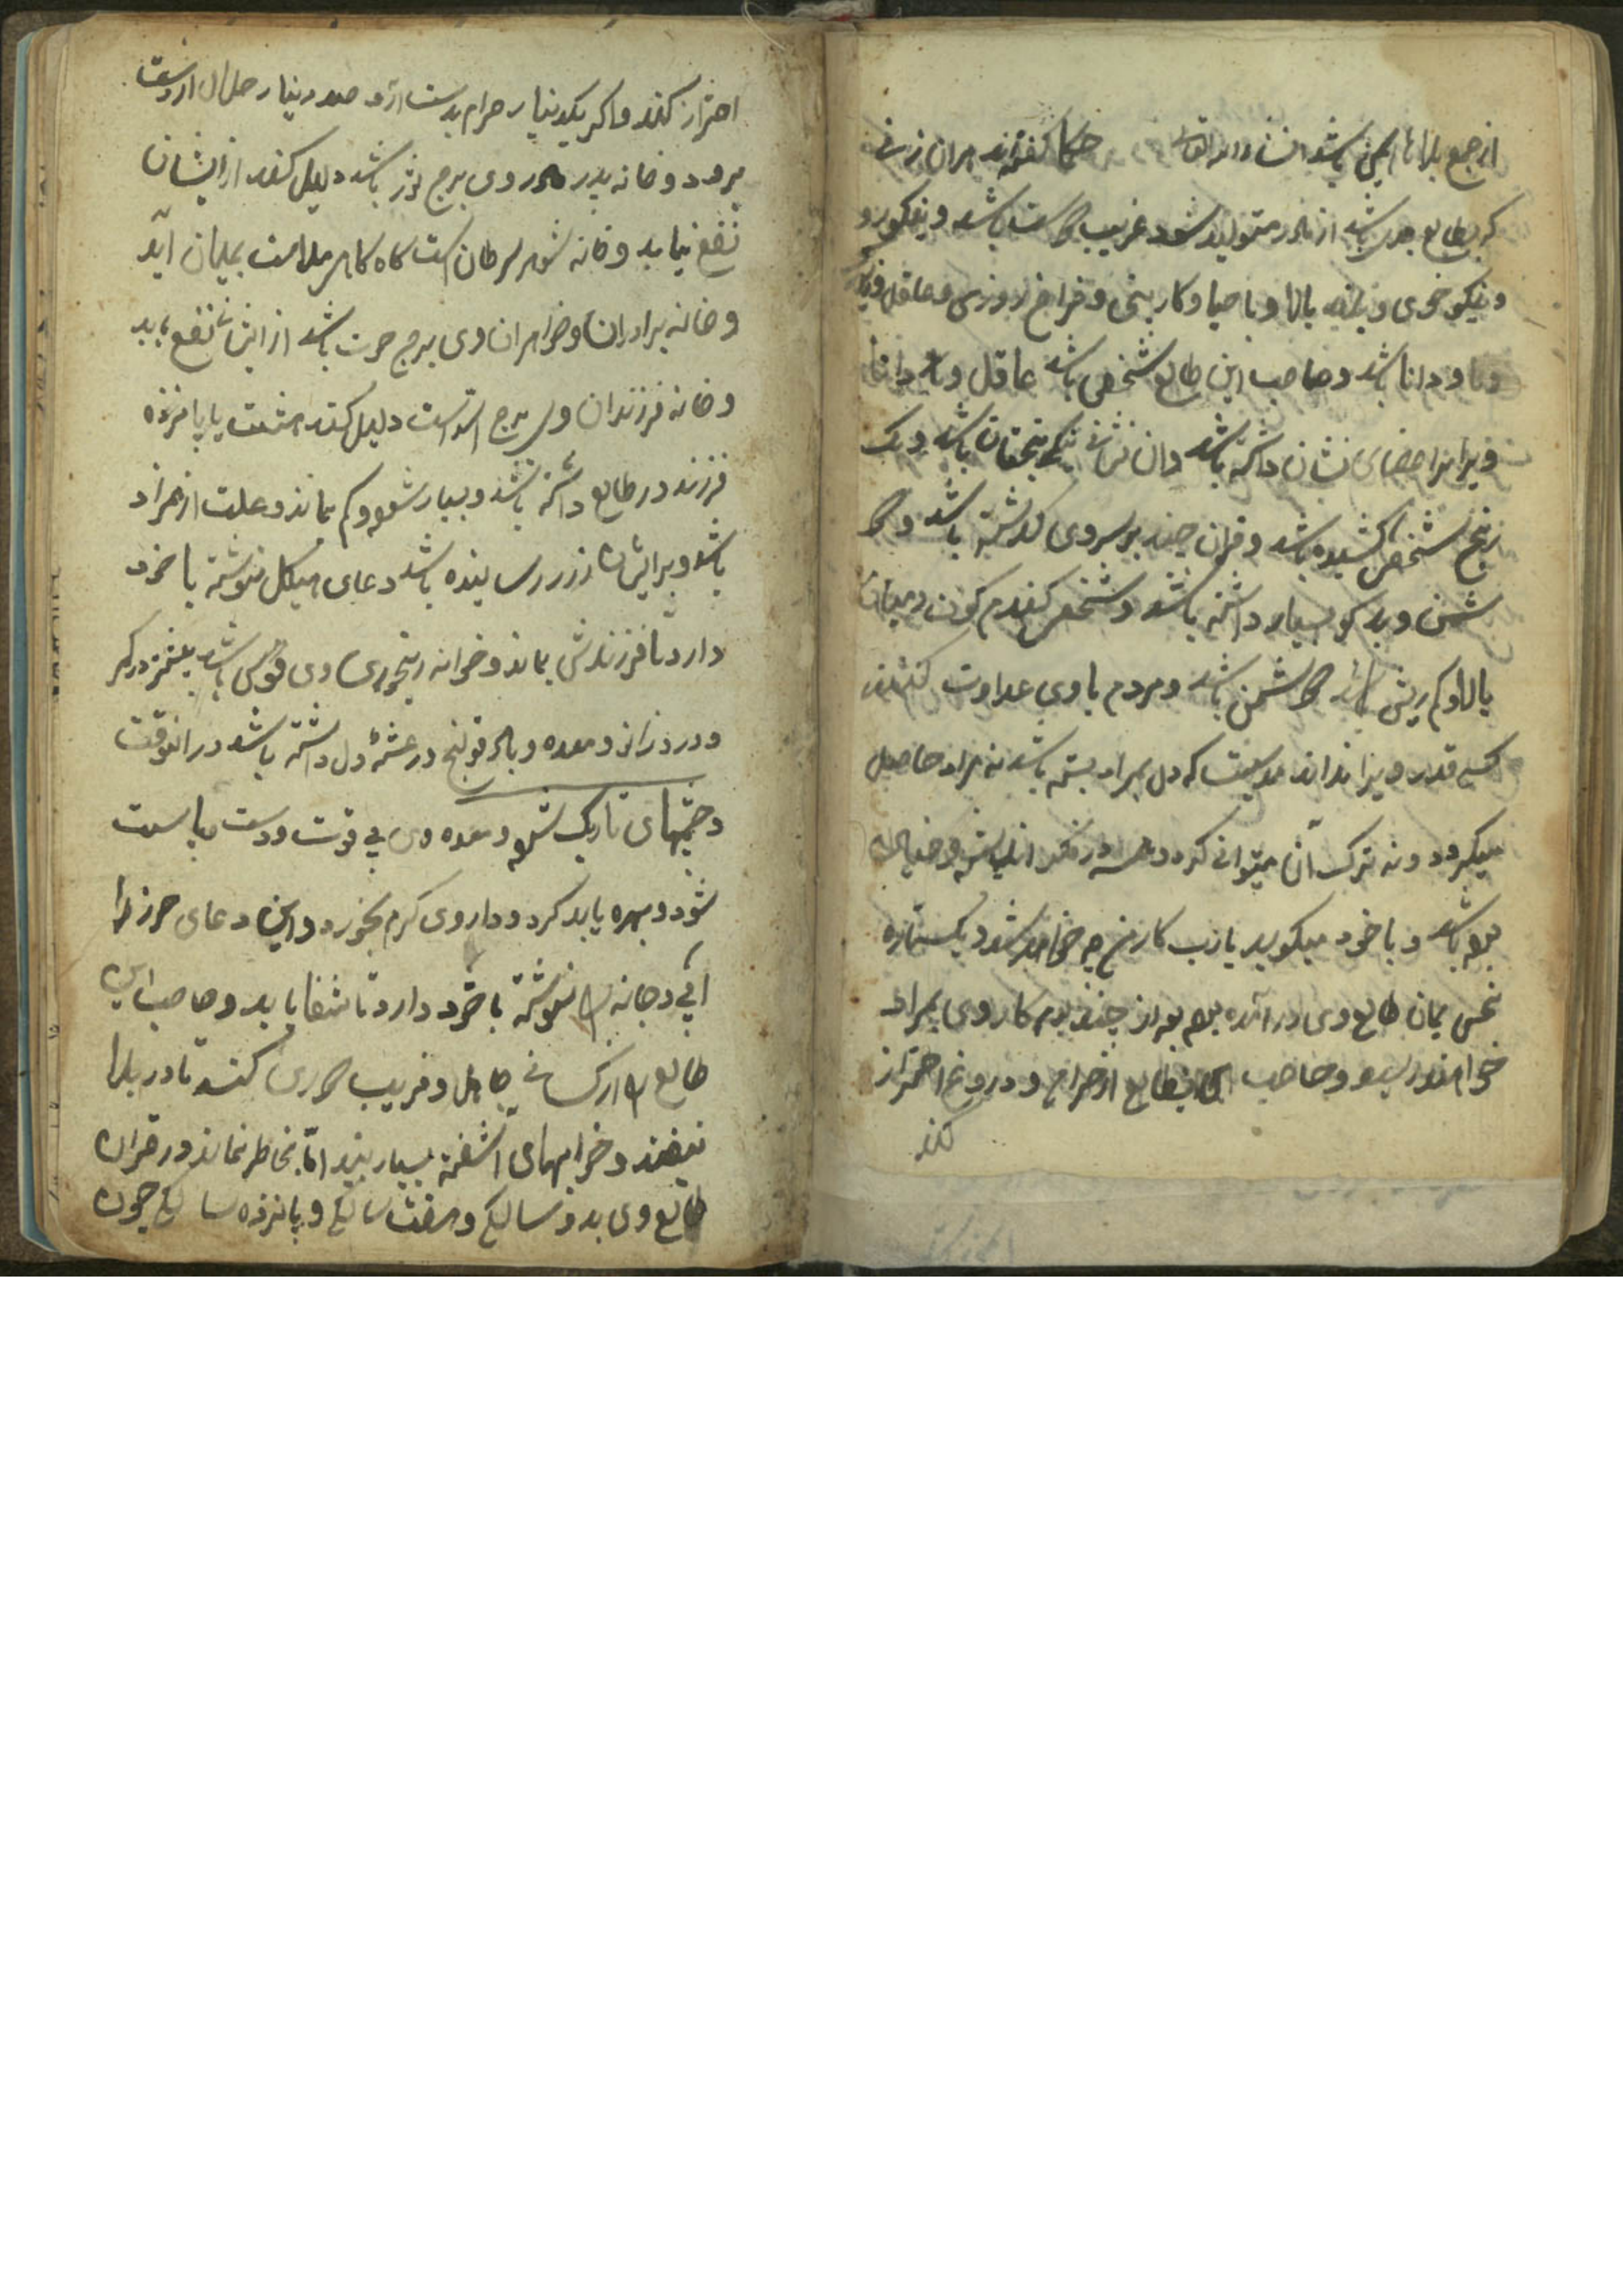 از جمع بلاها ایمن باشد انشاء الله تعالی حکما گفته‌اند هران زنی
که بطالع جدی باشد از مادر متولد شود غریب باشد و نیکورو
و نیکو خوی و بالا و با حیا و کار و فراخ روزی و عاقل
و دانا باشد و صاحب این طالع شخصی باشد عاقل و دانا
و برا براعضای نشان داشته باشد و ان نشان نیک بختان باشد و یک
رنج شخصی کشیده باشد و قران چند بر سر وی گذشته باشد و
دشمن و بدکو بسیار داشته باشد و شخصی کندم کون و میان
بالا و کم ریش باشد دشمن باشد و مردم با وی عداوت کنند
کسی قدر ویرا نداند مدتیست که دل بمراد بسته باشد نه مراد حاصل
میکردد و نه ترک آن میتوانی کرد در فکر اندیشه و خیال
بود باشد و با خود میکوید یا رب کار من چه خواهد شد و یک ستاره
نحس بمان طالع وی در آمده بود بعد از چند یوم کار وی بمراد
خواهد رسید و صاحب این طالع از حرام و دروغ احتراز
کند
احتراز کند و اگر یکدینار حرام بدست ارد صد دینار حلال از دست
برود و خانه پدر مادر وی برج ثور باشد دلیل کند از ایشان
نفع نیابد و خانه شوهر سرطان است کاه کاهی ملامت بمیان آید
و خانه برادران و خواهران وی برج حوت باشد از ایشان نفع یابد
و خانه فرزندان وی برج اسد است دلیل کند هشت یا پانزده
فرزند در طالع داشته باشد و بسیار شود و کم بماند و علت از همزاد
باشد و برایشان ضرر رسانیده باشد دعای هیکل نوشته با خود
دارد تا فرزندش بماند و خوانه رنجوری وی قوس باشد بیشتر درد کمر
و درد زانو و معده و باد قولنج و رعشهٔ دل داشته باشد در انوقت
و چشمهای تاریک شود و معده وی بی قوت و دست و پا سست
شود و بهره باید کرد و داروی کرم بخورد و این دعای حرز را
ابی دجانه را نوشته با خود دارد تا شفا یابد و صاحب این
طالع را از کسانی جاهل و فریب دوری کند تا در بلا
نیفتد و خوابهای اشفته بسیار بیند اما بخاطر نماند و در قران
طالع وی بدو سالکی و هفت سالکی و پانزده سالکی چون